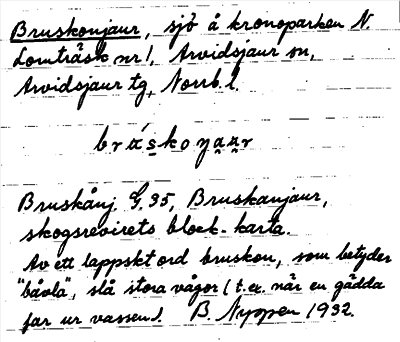 Bruskonjaur, sjö å kronoparken N.
Lomträsk nr 1, Arvidsjaur sn,
Arvidsjaur tg, Norrb. l.
Bruskånj. G. 35, Bruskanjaur,
skogsrevirets block-karta.
Av ett lappskt ord bruskon, som betyder
"båvla", slå stora vågor (t.ex. när en gädda
far ur vassen). B. Nyppen 1932.